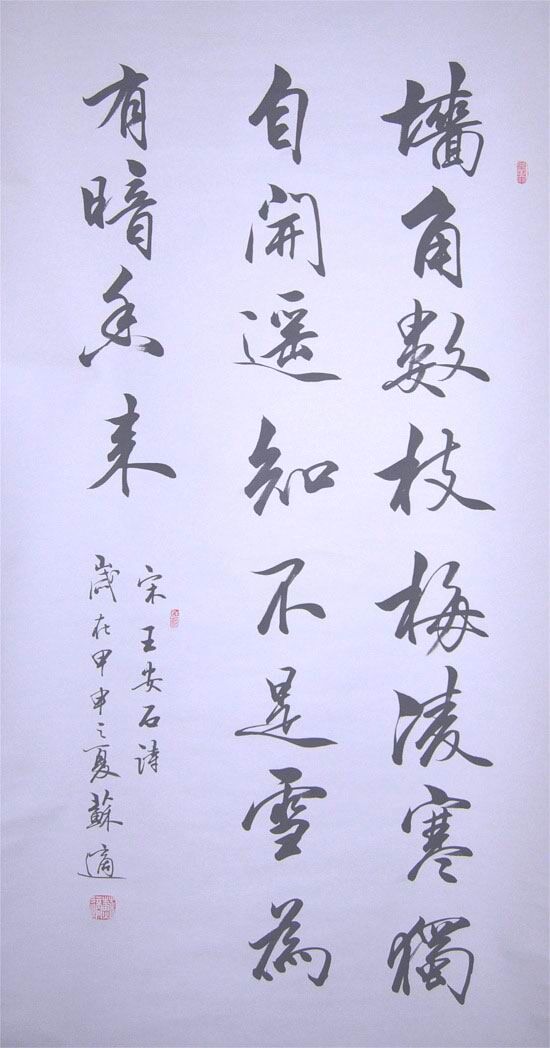 墻角數枝梅凌寒獨
自開遥知不是雪為
有暗香來
宋王安石詩
歲在甲申之夏蘇適